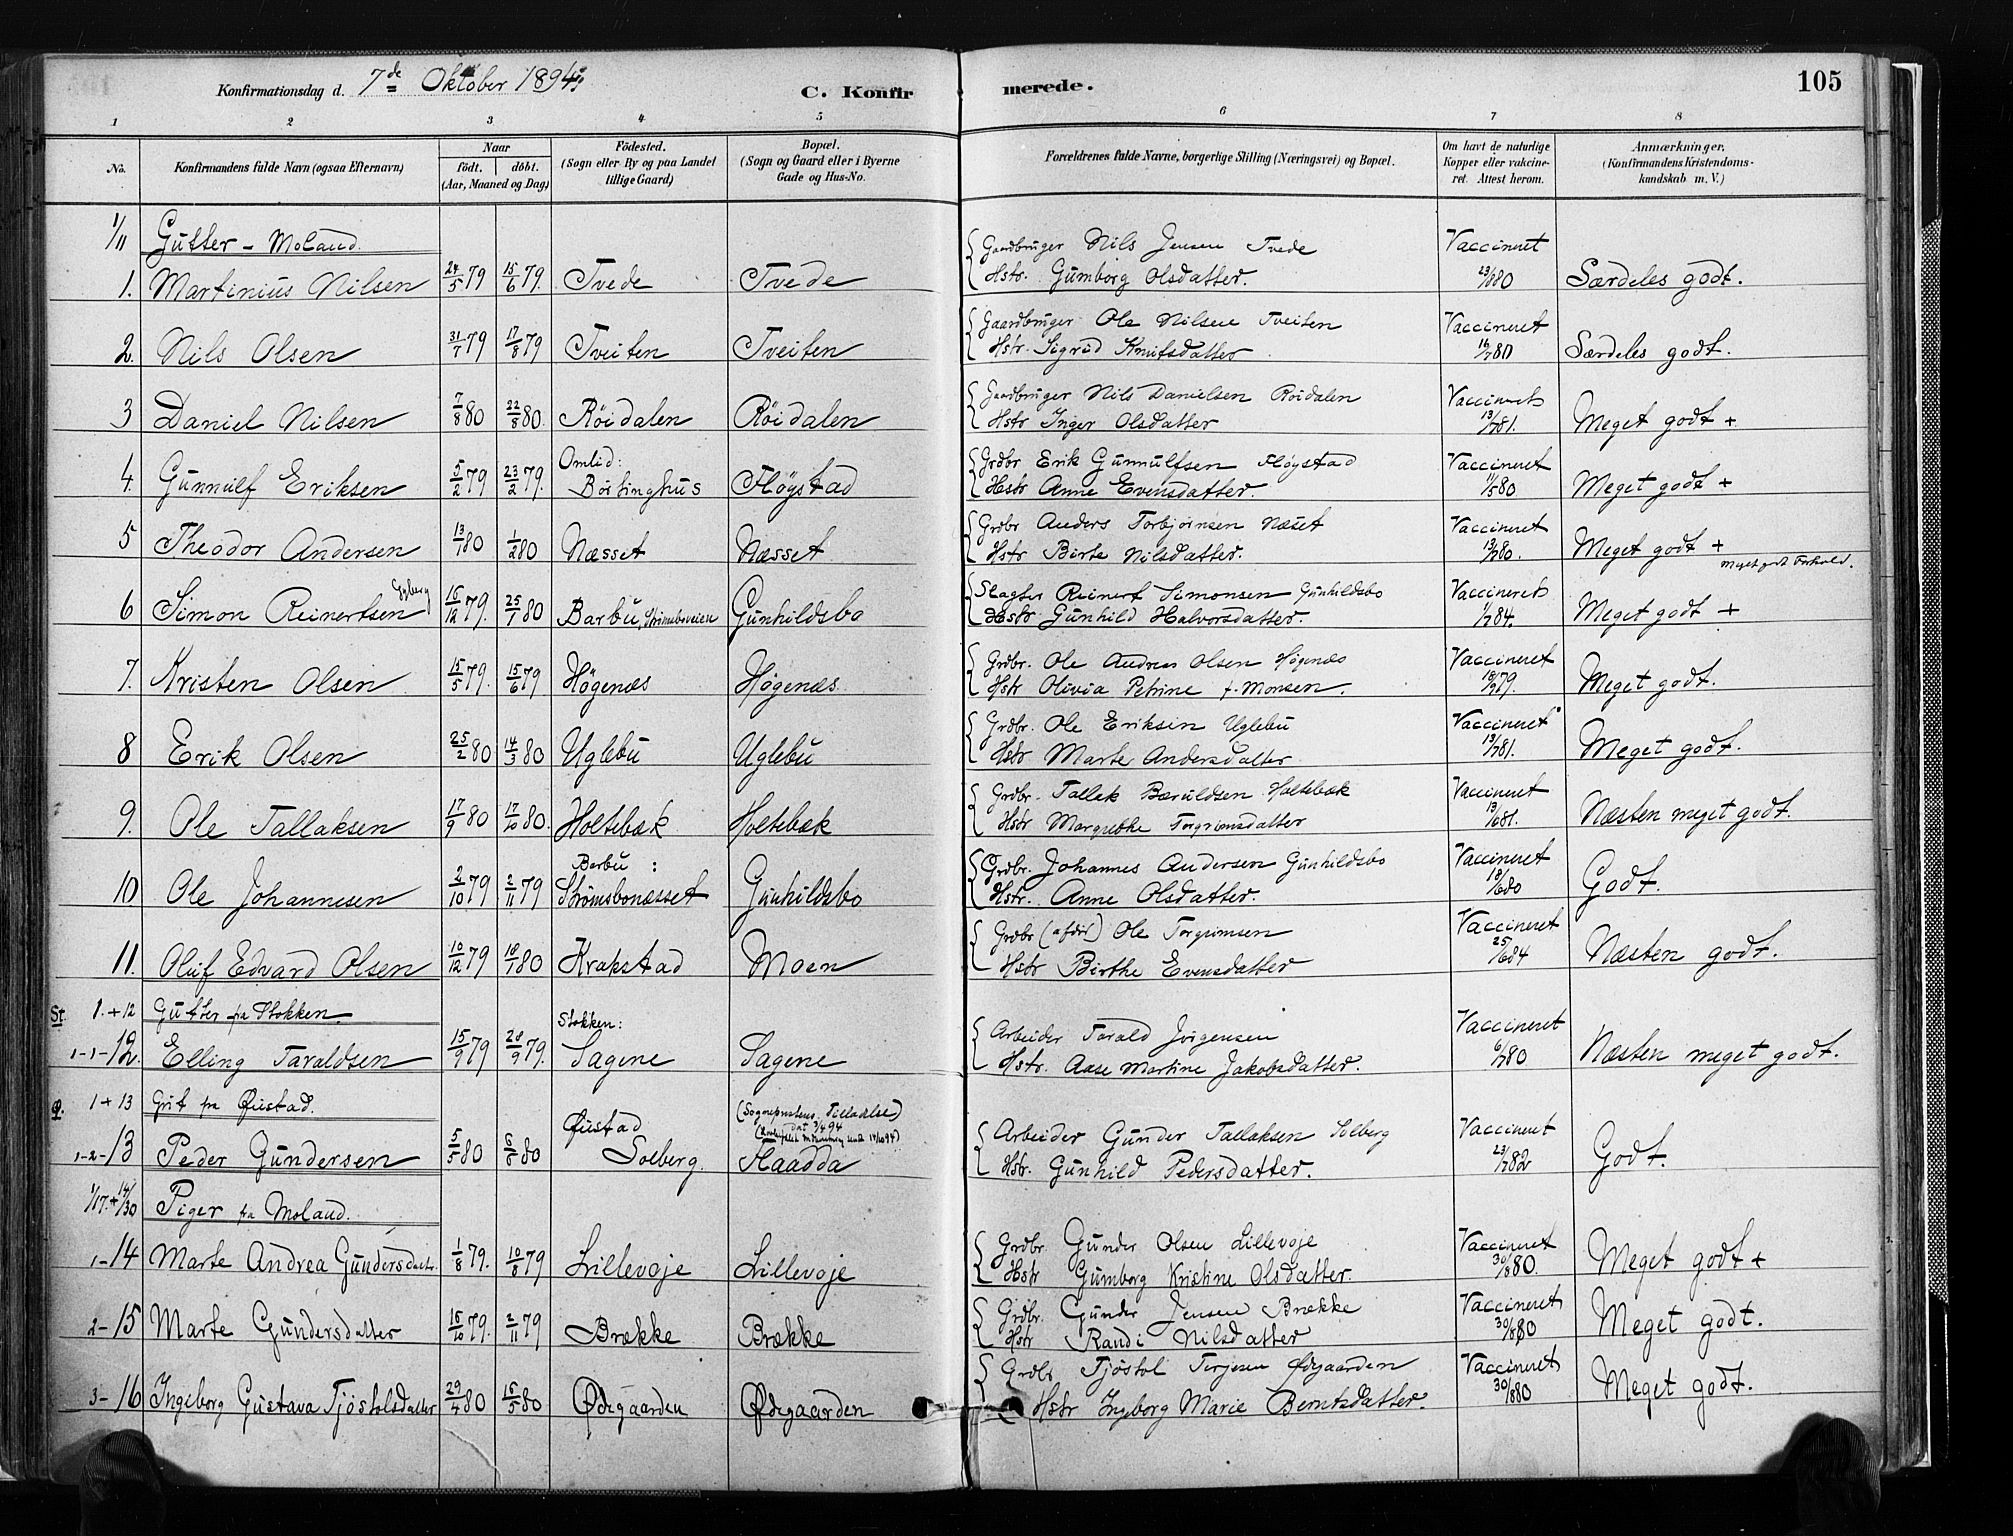 Konfirmationsdag d. 7de Oktober 1894
C. Konfirmerede.
105
1 2 3 4 5 6 7 8
No.
Konfirmandens fulde Navn (ogsaa Efternavn)
Naar
födt. döbt.
(Aar, Maaned og Dag)
Födested.
(Sogn eller By og paa Landet
tillige Gaard)
Bopæl.
(Sogn og Gaard eller i Byerne
Gade og Hus-No.
Forældrenes fulde Navne, borgerlige Stilling (Næringsvei) og Bopæl.
Om havt de naturlige
Kopper eller vakcine-
ret. Attest herom.
Anmærkninger.
(Konfirmandens Kristendoms-
kundskab m. V.)
1/11 Gutter - Moland.
1. Martinius Nilsen 24/5 79 15/6 79. Tvede Tvede
Gaardbruger Nils Jensen Tvede
Hstr. Gumborg Olsdatter.
Vaccineret
23/8 80
Særdeles godt.
2. Nils Olsen 31/7 79 17/8 79 Tveiten Tveiten
Gaardbruger Ole Nilsen Tveiten
Hstr. Sigrid Knutsdatter
Vaccineret
Særdeles godt.
3 Daniel Nilsen 7/8 80 22/8 80. Röidalen Röidalen
Gaardbruger Nils Danielsen Röidalen
Hstr Inger Olsdatter
Vaccineret
13/7 81.
Meget godt +
4. Gunnulf Eriksen 5/2 79 23/2 79. Omlid: Flöystad
Grdbr Erik Gunnulfsen Flöystad
Hstr Anne Evensdatter.
Vaccineret
Meget godt +
5 Theodor Andersen 13/1 80 1/2 80 Næsset Næsset
Grdbr Anders Torbjörnsen Næset
Hstr Birte Nilsdatter.
Vaccineret
13/7 80.
Meget godt +
meget godt Forhold.
6 Simon Reinertsen 16/12 79. 25/1 80 Barbu, Strömsboveien Gunhildsbo
Slagter Reinert Simonsen Gunhildsbo
Hstr Gunhild Halvorsdatter.
Vaccineret
1/7 84.
Meget godt +
7. Kristen Olsen 15/5 79. 15/6 79 Högenæs Høgenæs.
Grdbr. Ole Andreas Olsen Høgenæs
Hstr Olivia Petrine f. Monsen.
Vaccineret
18/9 79.
Meget godt.
8 Erik Olsen 25/2 80 14/3 80 Uglebu Uglebu
Grdbr. Ole Eriksen Uglebu
Hstr Marte Andersdatter
Vaccineret
13/7 81.
Meget godt.
9. Ole Tallaksen 17/9 80 17/10 80. Holtebæk Holtebæk
Grdbr. Tallak Bæruldsen Holtebæk
Hstr Margrethe Torgrimsdatter
Vaccineret
13/6 81.
Næsten meget godt.
10. Ole Johannesen 2/10 79 2/11 79 Barbu: Strömsbonæsset Gunhildsbo
Grdbr. Johannes Andersen Gunhildsbo
Hstr. Anne Olsdatter.
Vaccineret
18/6 80
Godt.
11. Oluf Edvard Olsen 10/12 79 18/1 80 Krakstad Moen
Grdbr (afdöd) Ole Torgrimsen
Hstr Birthe Evensdatter
Vaccineret
25/6 84
Næsten godt.
St. 1.+12 Gutter fra Stokken.
1-1-12. Elling Taraldsen 15/9 79 28/9 79. Stokken: Sagene Sagene
Arbeider Tarald Jørgensen
Hstr. Aase Martine Jakobsdatter.
Vaccineret
6/7 80
Næsten meget godt.
Ø. 1+13 Gut fra Øiestad.
1-2-13 Peder Gundersen 5/5 80 6/6 80 Øiestad Solberg. (Sognepræstens Tilladelse) dat 3/4 94
Haadda
Arbeider Gunder Tallaksen Solberg
Hstr. Gunhild Pedersdatter.
Vaccineret
23/7 82
Godt.
1/17.+14/30 Piger fra Moland.
1-14 Marte Andrea Gundersdatter. 1/8 79. 10/8 79 Lillevoje Lillevoje
Grdbr. Gunder Olsen Lillevoje
Hstr Gumborg Kristine Olsdatter.
Vaccineret
30/8 80.
Meget godt +
2-15 Marte Gundersdatter 16/10 79. 2/11 79 Brække Brække
Grdbr. Gunder Jensen Brække
Hstr Randi Nilsdatter
Vaccineret
30/8 80
Meget godt.
3-16 Ingeborg Gustava Tjöstolsdatter 29/4 80 16/5 80 Ödegaarden Ödegaarden
Grdbr. Tjöstol Terjesen Ødegaarden
Hstr Ingeborg Marie Berntsdatter.
Vaccineret
30/8 80
Meget godt.